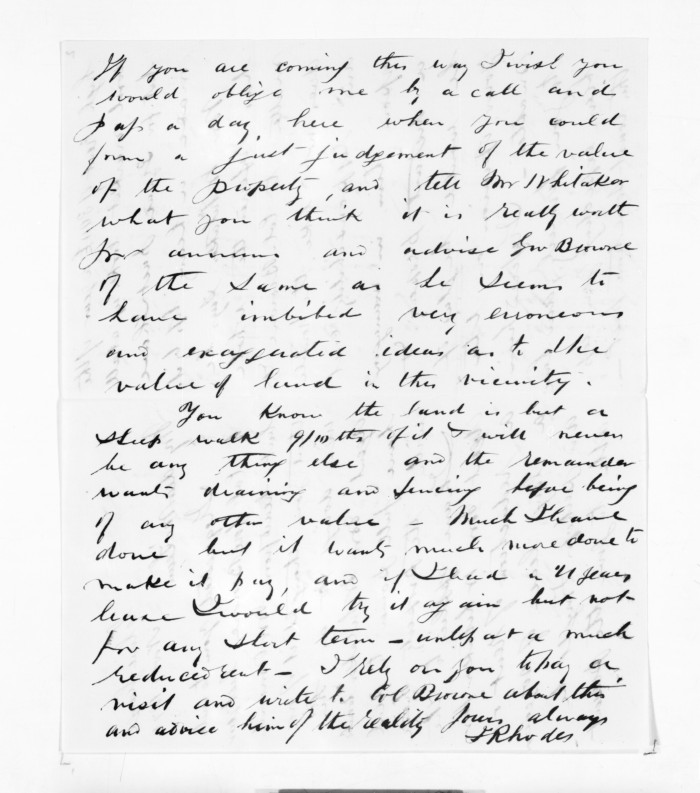 If you are coming this way I wish you
would oblige me by a call and
pass a day here when you could
form a just judgement of the value
of the property, and tell Mr Whitaker
what you think it is really worth
per annum and advise Gov Browne
of the same as he seems to
have imbibed very erroneous
and exaggerated ideas as to the
value of land in this vicinity.
You know the land is but a
sheep walk 9/10ths of it & will never
be any thing else and the remainder
wants draining and fencing before being
of any other value - Much I have
done but it wants much more done to
make it pay, and if I had a 21 years
lease I would try it again but not
for any short term - unless at a much
reduced rent - I rely on you to pay a
visit and write to Col Browne about this
and advise him of the reality Yours always
J Rhodes